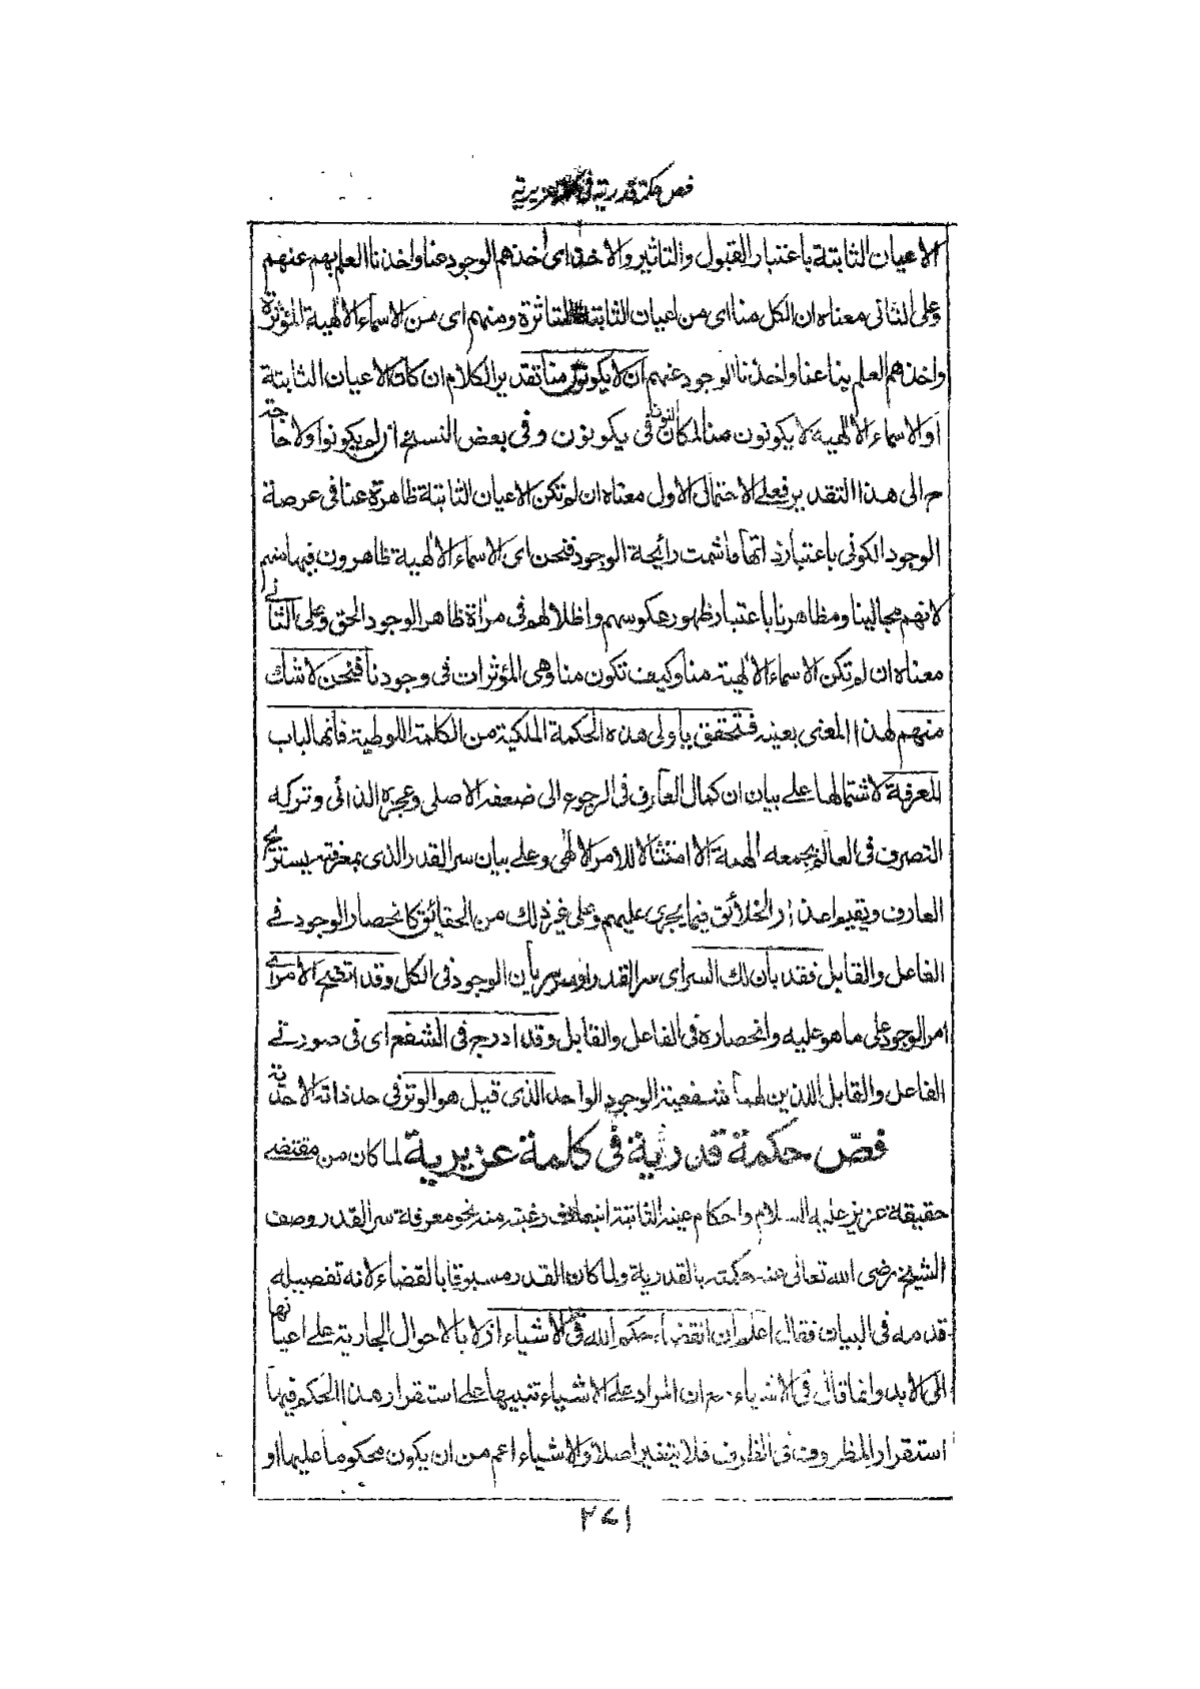 فص حكمة قدرية في عزيرية
الاعيان الثابتة باعتبار القبول والتاثير والاخذ اى اخذهم الوجود عنا واخذنا العلم بهم عنهم
وعلى الثانى معناه ان الكل منا اى من اعيان الثابتة المتاثرة ومنهم اى من الاسماء الالهية المؤثرة
واخذهم العلم بنا عنا واخذنا الوجود عنهم ان لا يكونون منا تقدير الكلام ان كان الاعيان الثابتة
او الاسماء الالهية لا يكونون منا لمكان النون فى يكونون وفى بعض النسخ ان لم يكونوا ولا حاجة
ح الى هذا التقدير فعلى الاحتمال الاول معناه ان لم تكن الاعيان الثابتة ظاهرة عنا فى عرصة
الوجود الكونى باعتبار ذاتها ما شمت رائحة الوجود فنحن اى الاسماء الالهية ظاهرون فيها منهم
لانهم مجالينا ومظاهرنا باعتبار ظهور عكوسهم واظلالهم فى مراة ظاهر الوجود الحق وعلى الثانى
معناه ان لم تكن الاسماء الالهية منا وكيف تكون منا وهى المؤثرات فى وجودنا فنحن لا شك
منهم لهذا المعنى بعينه فتحقق يا ولى هذه الحكمة الملكية من الكلمة اللوطية فانها لباب
المعرفة لاشتمالها على بيان ان كمال العارف فى الرجوع الى ضعفه الاصلى وعجزه الذاتى وتركه
التصرف فى العالم بجمعه الهمة الا امتثالا للامر الالهى وعلى بيان سر القدر الذى بمعرفته يستريح
العارف ويقيم اعذار الخلائق فيما يجرى عليهم وعلى غير ذلك من الحقائق كانحصار الوجود فى
الفاعل والقابل فقد بان لك السر اى سر القدر او سر سريان الوجود فى الكل وقد اتضح الامر اى
امر الوجود على ما هو عليه وانحصاره فى الفاعل والقابل وقد ادرج فى الشفع اى فى صورتى
الفاعل والقابل اللذين لهما شفعية الوجود الواحد الذى قيل هو الوتر فى حد ذاته الاحدية
فصّ حكمة قدرية فى كلمة عزيرية لما كان من مقتضى
حقيقة عزير عليه السلام واحكام عينه الثابتة انبعاث رغبته منه نحو معرفة سر القدر وصف
الشيخ رضى الله تعالى عنه حكمته بالقدرية ولما كان القدر مسبوقا بالقضاء لانه تفصيله
قدمه فى البيان فقال اعلم ان القضاء حكم الله فى الاشياء ازلا بالاحوال الجارية على اعيانها
الى الابد وانما قال فى الاشياء مع ان المراد على الاشياء تنبيها على استقرار هذا الحكم فيها
استقرار المظروف فى الظرف فلا يتغير اصلا والاشياء اعم من ان يكون محكوما عليها او
٢٧١